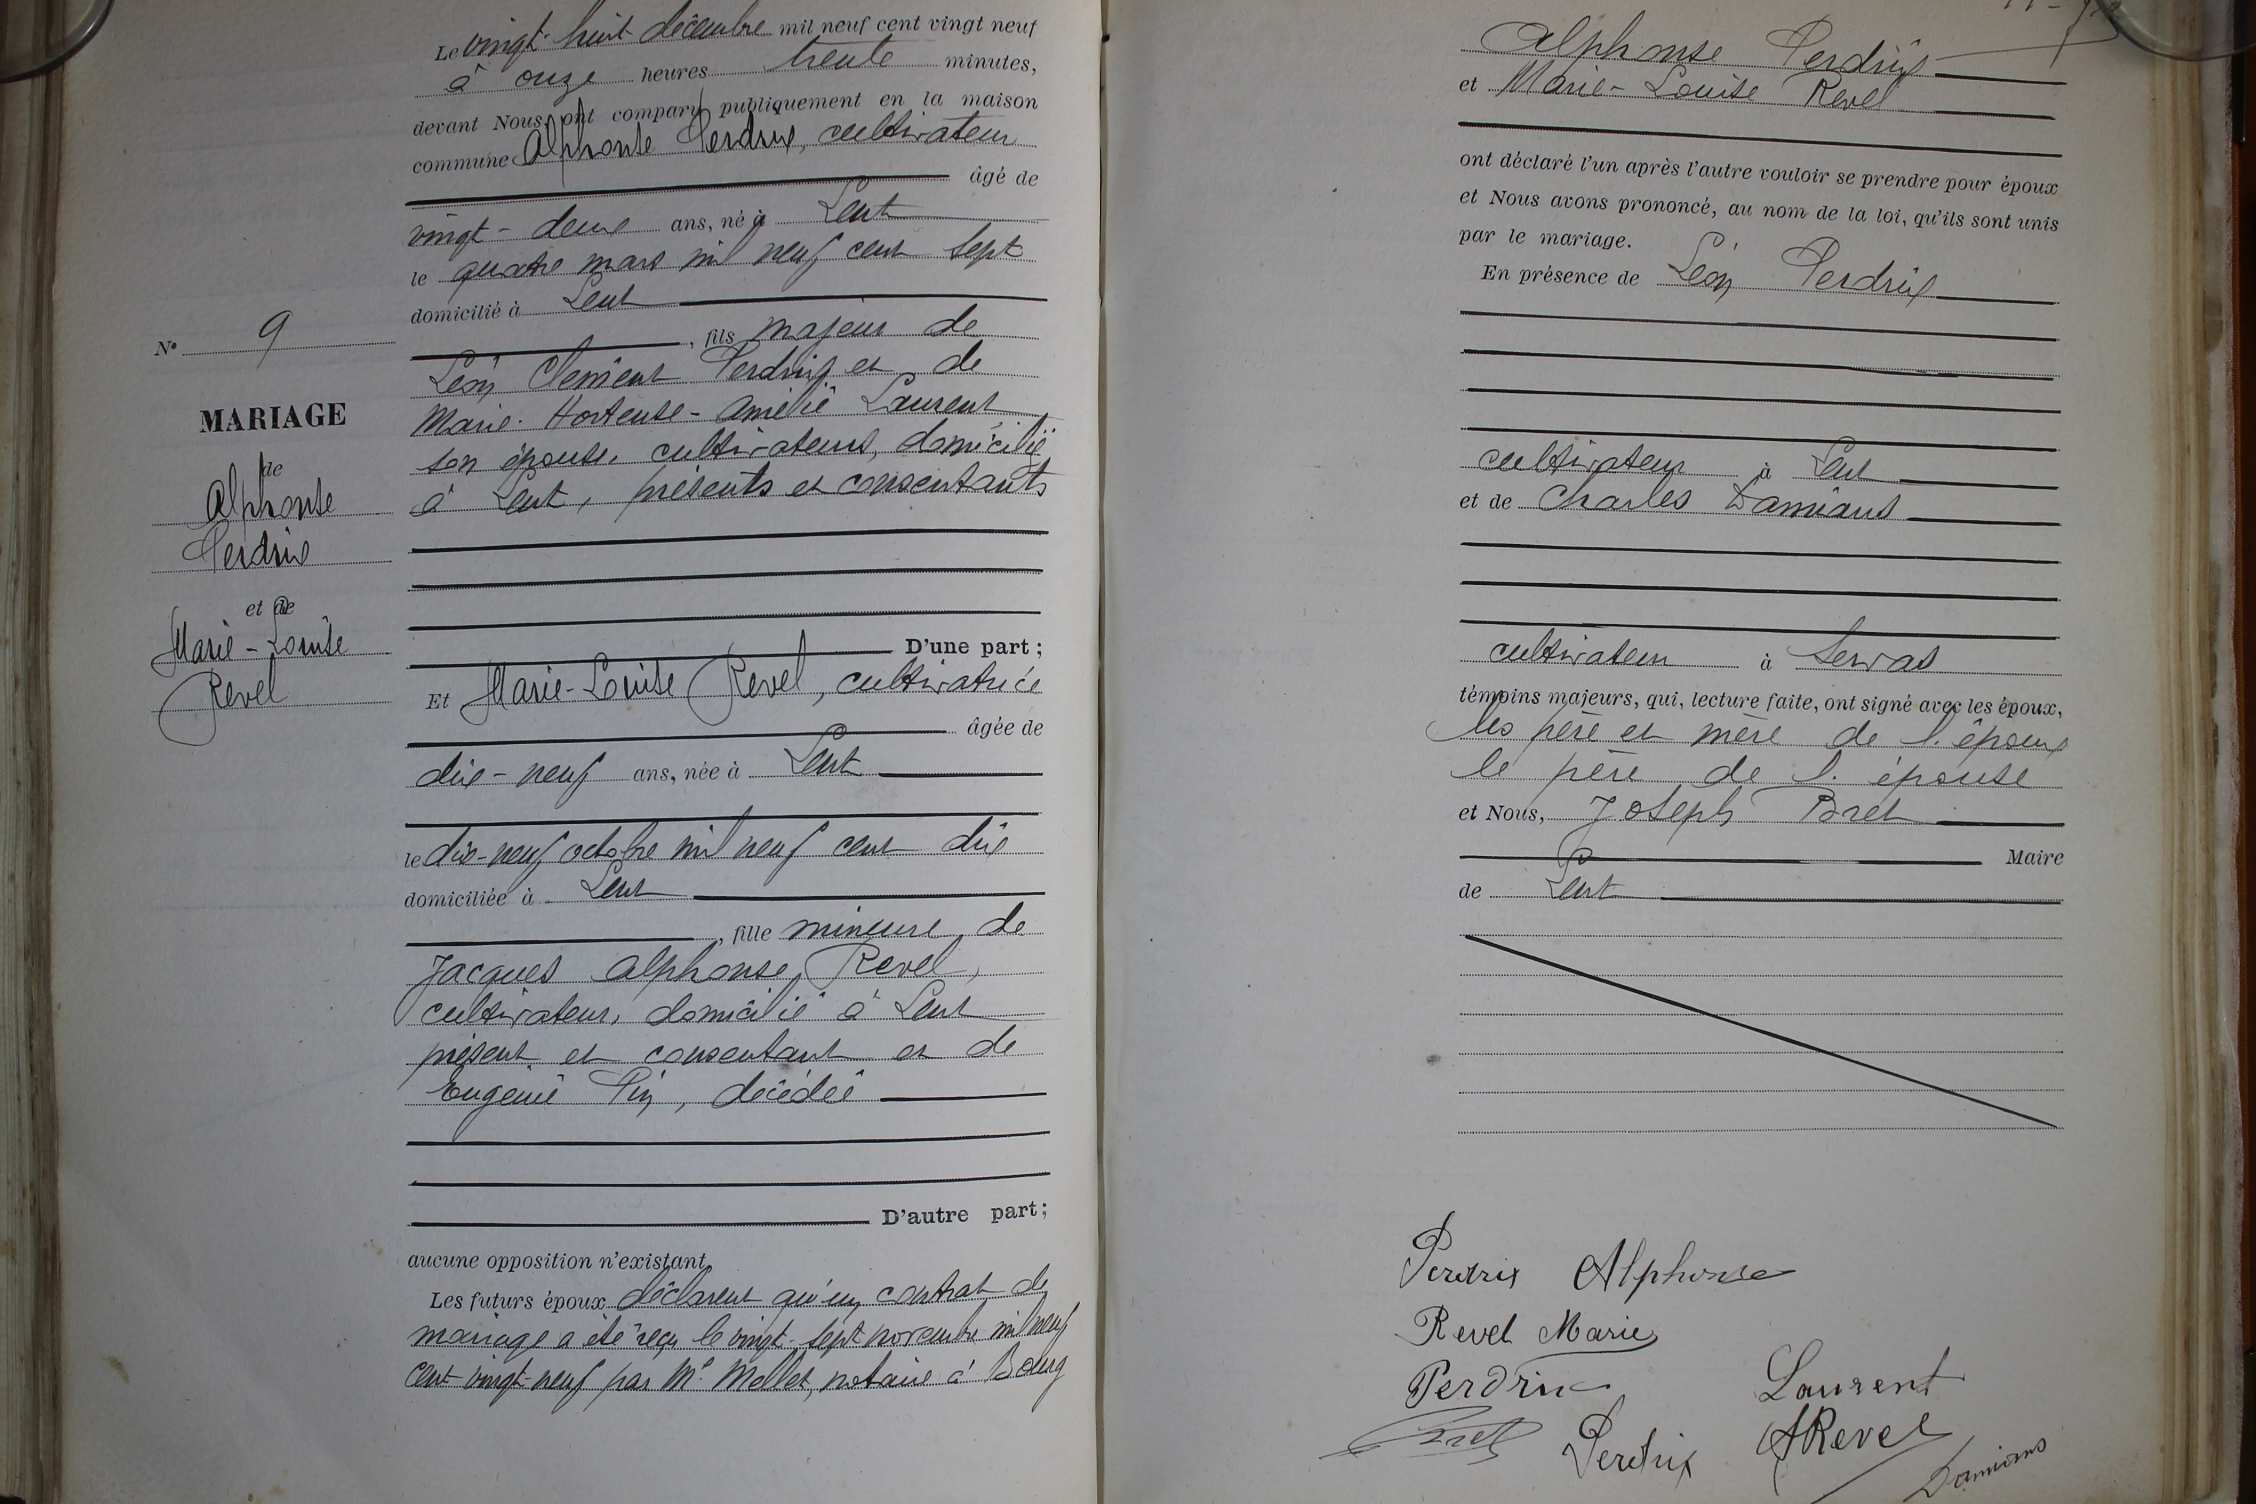 Le vingt-huit décembre mil neuf cent vingt neuf
à onze heures trente minutes,
devant Nous, ont comparu publiquement en la maison
commune Alphonse Perdrix, cultivateur
âgé de
vingt-deux ans, né à Lent
le quatre mars mil neuf cent sept
domicilié à Lent
, fils majeur de
Léon Clément Perdrix et de
Marie-Hortense-Amélie Laurent
son épouse, cultivateurs, domiciliés
à Lent, présents et consentants
D'une part ;
N° 9
MARIAGE
de
Alphonse
Perdrix
et de
Marie-Louise
Revel
Et Marie-Louise Revel, cultivatrice
âgée de
dix-neuf ans, née à Lent
le dix-neuf octobre mil neuf cent dix
domiciliée à Lent
, fille mineure de
Jacques Alphonse Revel,
cultivateur, domicilié à Lent
présent et consentant et de
Eugénie Pin, décédée
D'autre part ;
aucune opposition n'existant
Les futurs époux déclarent qu'un contrat de
mariage a été reçu le vingt-sept novembre mil neuf
cent vingt-neuf par Me Mollet, notaire à Bourg
Alphonse Perdrix
et Marie-Louise Revel
ont déclaré l'un après l'autre vouloir se prendre pour époux
et Nous avons prononcé, au nom de la loi, qu'ils sont unis
par le mariage.
En présence de Léon Perdrix
cultivateur à Lent
et de Charles Damians
cultivateur à Servas
témoins majeurs, qui, lecture faite, ont signé avec les époux,
les père et mère de l'époux
le père de l'épouse
et Nous, Joseph Bret
Maire
de Lent
Perdrix Alphonse
Revel Marie
Perdrix Laurent
Bret Perdrix ARevel
Damians